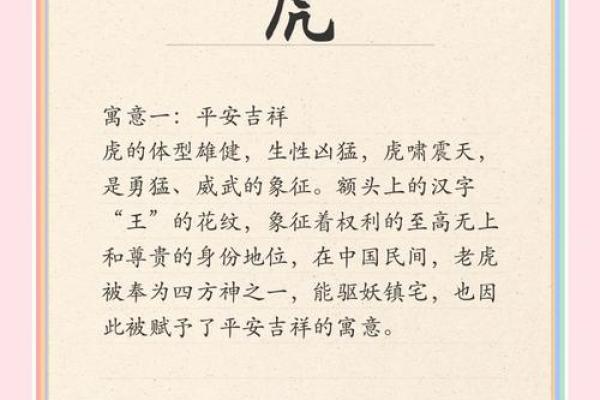 虎
寓意一：平安吉祥
虎的体型雄健，生性凶猛，虎啸震天，
是勇猛、威武的象征。额头上的汉字
“王”的花纹，象征着权利的至高无上
和尊贵的身份地位，在中国民间，老虎
被奉为四方神之一，能驱妖镇宅，也因
此被赋予了平安吉祥的寓意。